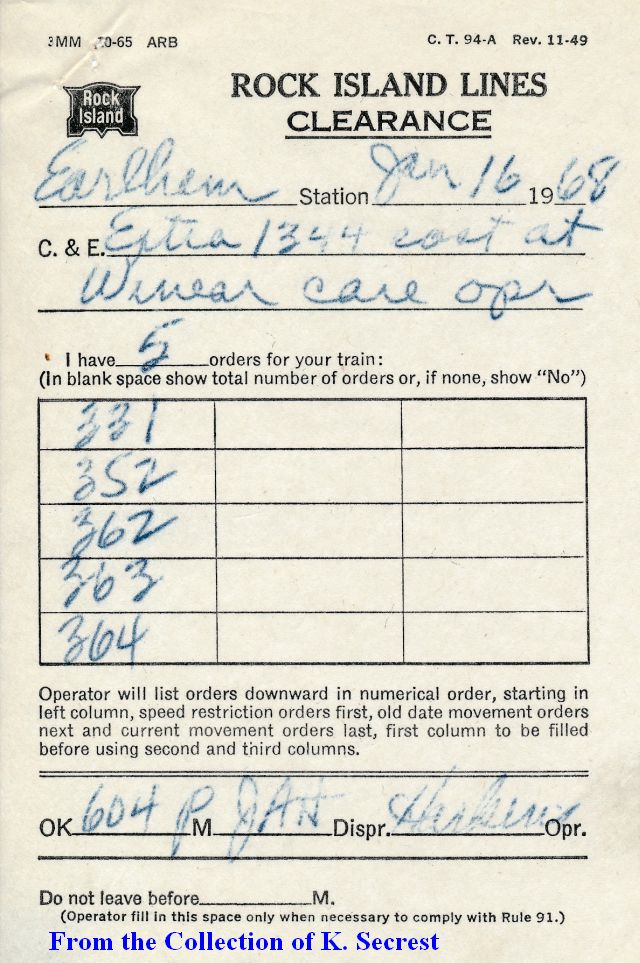 3MM 10-65 ARB C. T. 94-A Rev. 11-49
Rock
Island
ROCK ISLAND LINES
CLEARANCE
Earlham Station Jan 16 1968
C. & E. Extra 1344 east at
care opr
I have 5 orders for your train:
(In blank space show total number of orders or, if none, show “No”)
331
352
362
363
364
Operator will list orders downward in numerical order, starting in
left column, speed restriction orders first, old date movement orders
next and current movement orders last, first column to be filled
before using second and third columns.
OK 604 P M. JAH Dispr. Opr.
Do not leave before M.
(Operator fill in this space only when necessary to comply with Rule 91.)
From the Collection of K. Secrest